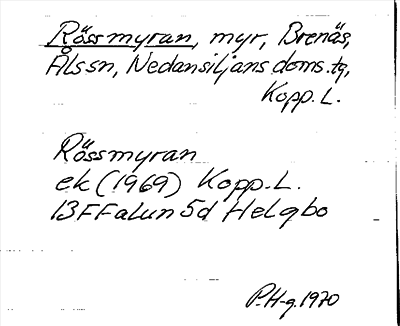 Rössmyran, myr, Brenäs,
Ålssn, Nedansiljans doms.tg,
Kopp. L.
Rössmyran
ek (1969) Kopp. L.
13F Falun 5d Helgbo
P.H-g. 1970